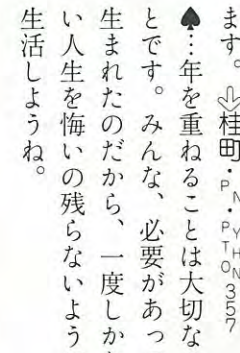 ます。 桂町・PN・PYTHON357
♠…年を重ねることは大切な
とです。みんな、必要があっ
生まれたのだから、一度しか
い人生を悔いの残らないよう
生活しようね。